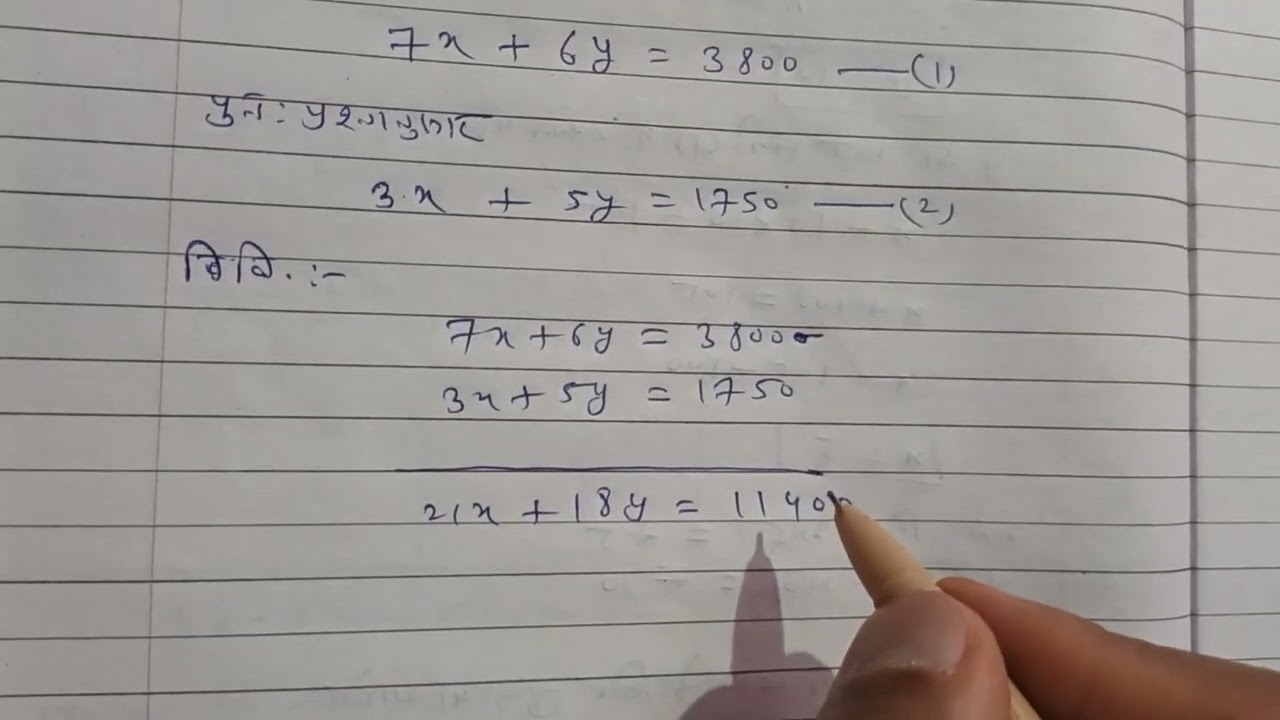 7x + 6y = 3800 —(1)
पुनः प्रश्नानुसार
3.x + 5y = 1750 —(2)
वि वि. :-
7x + 6y = 3800
3x + 5y = 1750
21x + 18y = 11400